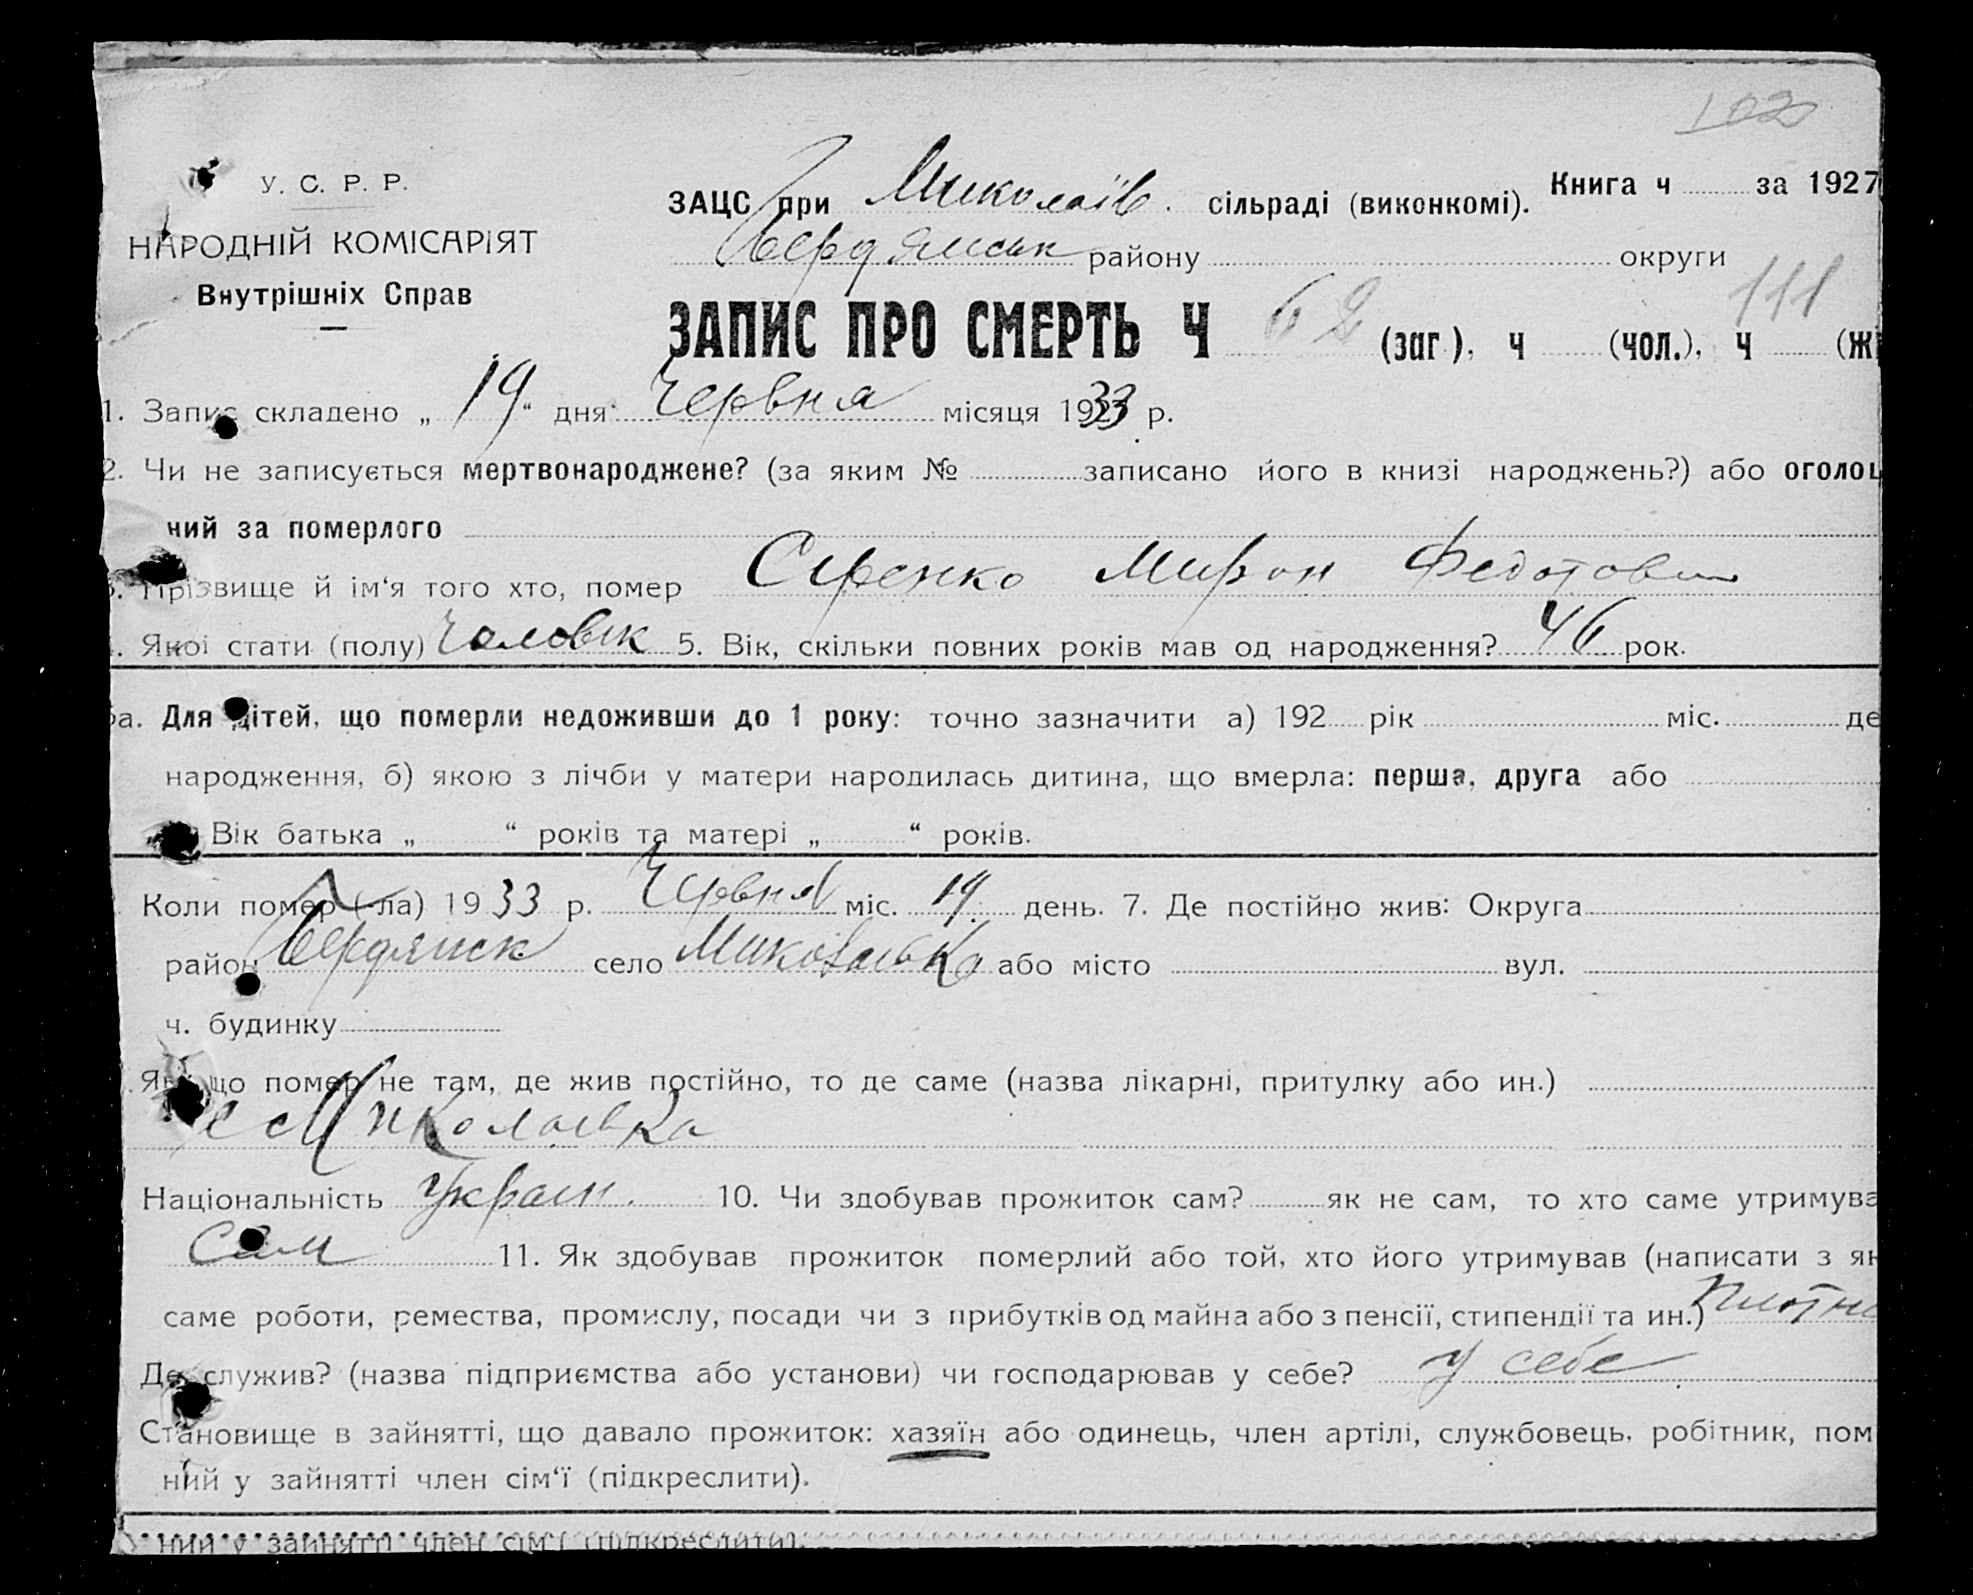 102
У. С. Р. Р.
НАРОДНІЙ КОМІСАРІЯТ
Внутрішніх Справ
ЗАЦС при Миколаїв. сільраді (виконкомі). Книга ч за 1927
Бердянськ району округи
ЗАПИС ПРО СМЕРТЬ Ч 62 (заг), ч (чол.), ч 111 (ж
1. Запис складено „19“ дня Червня місяця 1933 р.
2. Чи не записується мертвонароджене? (за яким № записано його в книзі народжень?) або оголош
ний за померлого
Прізвище й ім'я того хто, помер Сіренко Мирон Федотович
Якої стати (полу) Чоловік 5. Вік, скільки повних років мав од народження? 46 рок.
а. Для дітей, що померли недоживши до 1 року: точно зазначити а) 192 рік міс. де
народження, б) якою з лічби у матери народилась дитина, що вмерла: перша, друга або
Вік батька „ “ років та матері „ “ років.
Коли помер (-ла) 1933 р. Червня міс. 19. день. 7. Де постійно жив: Округа
район Бердянск село Миколаївка або місто вул.
ч. будинку
Якщо помер не там, де жив постійно, то де саме (назва лікарні, притулку або ин.)
с Миколаевка
Національність Украін. 10. Чи здобував прожиток сам? як не сам, то хто саме утримува
Сам 11. Як здобував прожиток померлий або той, хто його утримував (написати з як
саме роботи, ремества, промислу, посади чи з прибутків од майна або з пенсії, стипендії та ин.) Плотни
Де служив? (назва підприємства або установи) чи господарював у себе? у себе
Становище в зайнятті, що давало прожиток: хазяїн або одинець, член артілі, службовець, робітник, пом
ний у зайнятті член сім'ї (підкреслити).
ний у зайнятті член сім'ї (підкреслити).